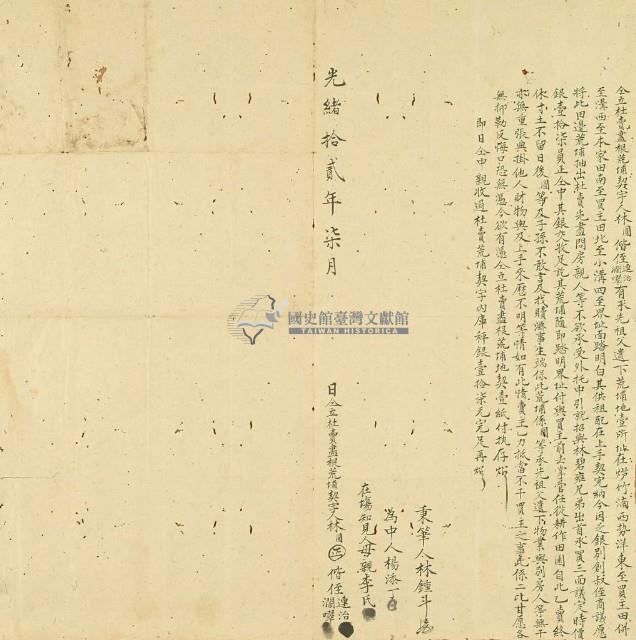 仝立杜賣盡根荒埔契字人林圓偕侄連治瀾嚶有承先祖父遺下荒埔地壹所址在竹滴西勢洋東至買主田併
至溝西至本家田南至買主田北至小溝四至界址面踏明白其供租配在上手契完納今因乏銀別創叔侄商議愿
將此田邊荒埔抽出杜賣先盡問房親人等不欲承受外托中引就招與林碧雍兄弟出首承買三面議定時價
銀壹拾柒員正仝中其銀交收足訖其荒埔隨即踏明界址付與買主前去掌管任從耕作田園自此乙賣終
休寸土不留日後圓等及子孫不敢言及找贖滋事生端保此荒埔係圓等承先祖父遺下物業與別房人等無干
亦無重張典掛他人財物與及上手來歷不明等情如有此情賣主一力抵當不干買主之事此係二比甘愿各
無抑勒反悔口恐無憑今欲有憑仝立杜賣盡根荒埔地契壹紙付執存炤
即日仝中親收過杜賣荒埔契字內庫秤銀壹拾柒元完足再炤
秉筆人林鍾斗
為中人楊添丁
在場知見人母親李氏
光緒拾貳年柒月 日仝立杜賣盡根荒埔契字人林圓偕侄連治瀾嚶
國史館臺灣文獻館
TAIWAN HISTORICA